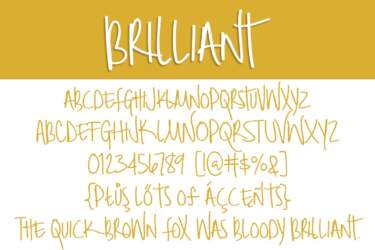 BRILLIANT
ABCDEFGHIJKLMNOPQRSTUVWXYZ
ABCDEFGHIJKLMNOPQRSTUVWXYZ
0123456789 [!@#$%&]
{PŁŰŞ LŐTS OF ÁÇCEÑTS}
THE QUICK BROWN FOX WAS BLOODY BRILLIANT.